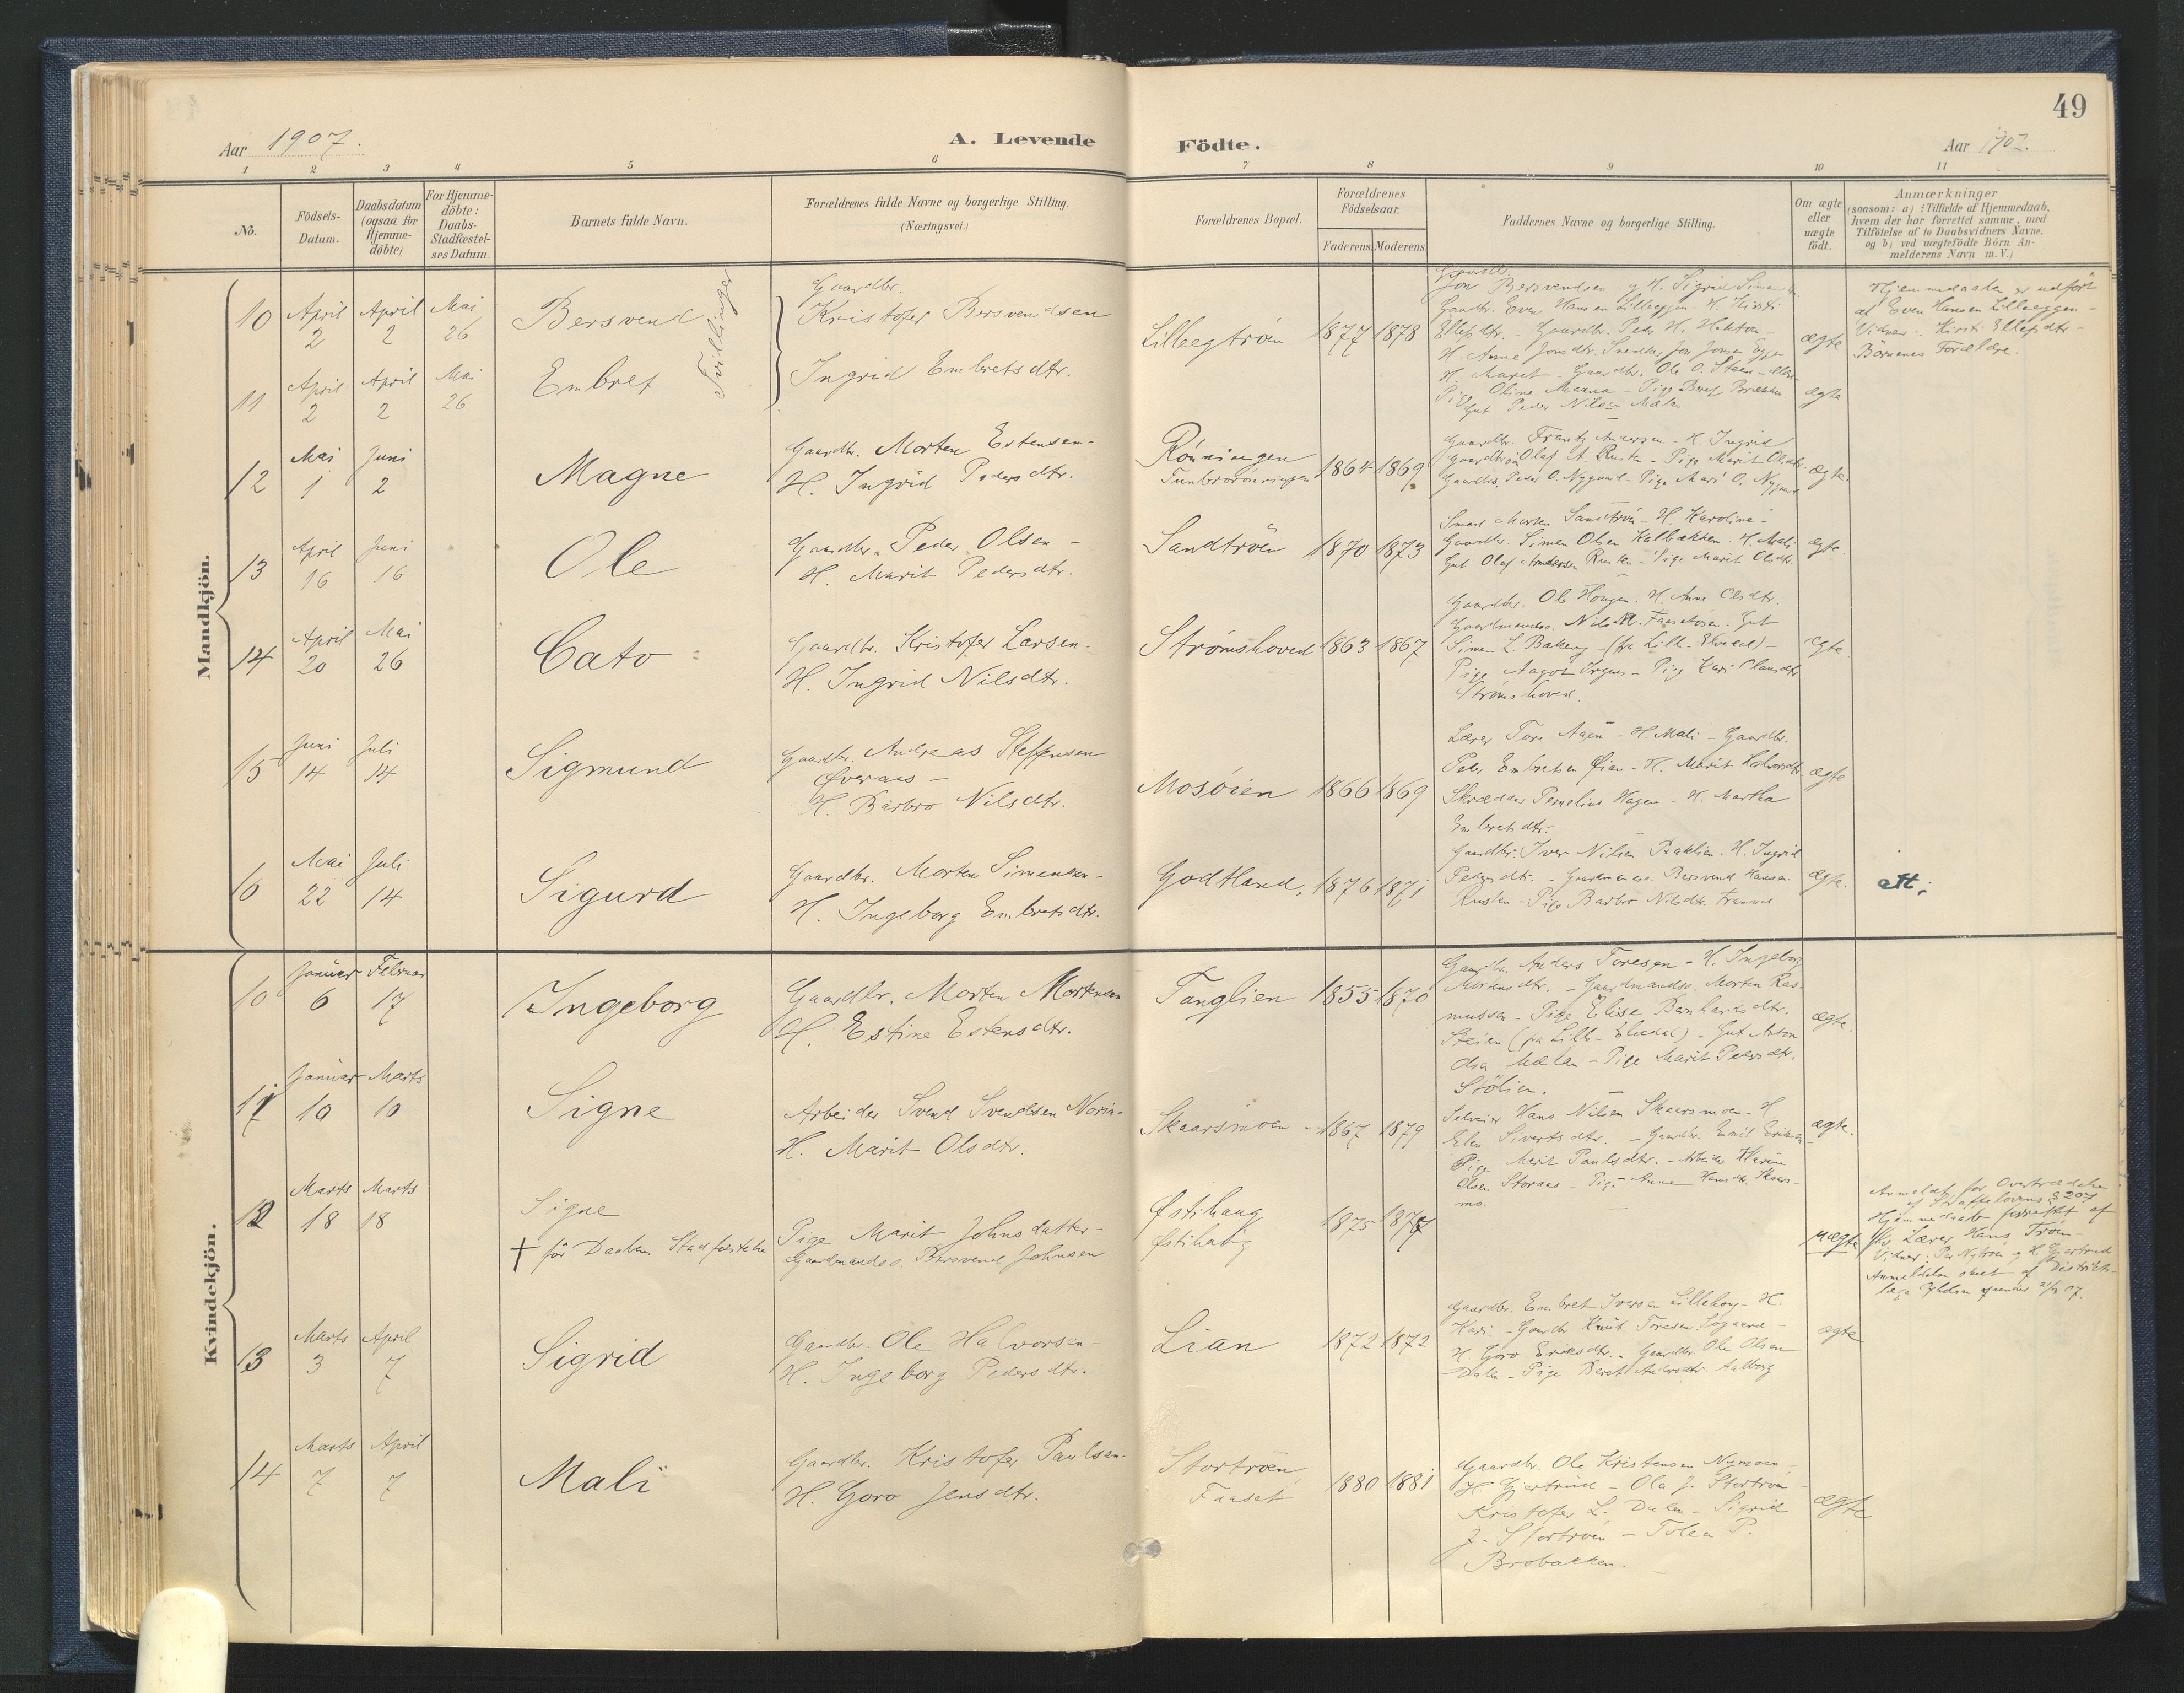 49
Aar 1907.
A. Levende Födte.
Aar 1907.
1 2 3 4 5 6 7 8 9 10 11
No.
Födsels-Datum.
Daabsdatum (ogsaa for Hjemme-döbte)
For Hjemme-döbte: Daabs-Stadfæstel-ses Datum.
Barnets fulde Navn.
Forældrenes fulde Navne og borgerlige Stilling. (Næringsvei.)
Forældrenes Bopæl.
Forældrenes Födselsaar.
Faderens. Moderens.
Faddernes Navne og borgerlige Stilling.
Om ægte eller uægte födt.
Anmærkninger
(saasom: a) i Tilfælde af Hjemmedaab,
hvem der har forrettet samme, med
Tilföielse af to Daabsvidners Navne.
og b) ved uægtefödte Börn An-
melderens Navn m. V.)
Mandkjön.
10 April 2 April 2 Mai 26 Bersvend
Tvillinger
Gaardbr. Kristofer Bersvendsen
Ingrid Embretsdtr.
Lilleegtröen 1877 1878
Jon Bersvendsen og H. Sigrid
Gaardbr. Even Hansen Lilleeggen - H. Kirsti
Ellefsdtr. - Gaardbr. Peder H.
H. Anne Jonsdtr. Jon Jonsen Eggen
H. Marit - Gaardbr. Ole O. Steen
Pige Oline - Pige Berit
Gut Peder Nilsen Mælen
ægte
Hjemmedaaben er udfört
af Even Hansen Lilleeggen -
Vidner: Kirsti Ellefsdtr -
Börnenes Forældre.
11 April 2 April 2 Mai 26 Embret
ægte
12 Mai 1 Juni 2 Magne
Gaardbr. Morten Estensen -
H. Ingrid Pedersdtr.
Rönningen
1864 1869
Gaardbr. Frantz Andersen - H. Ingrid
Olaf A. Rusten - Pige Marit Olsdtr.
Peder O. Nygaard - Pige Mari O. Nygaard
ægte.
13 April 16 Juni 16 Ole
Gaardbr. Peder Olsen -
H. Marit Pedersdtr.
Sandtröen 1870 1873
Morten Sandtröen - H. Karoline -
Gaardbr. Simen Olsen Kalbækken. H. Mali
Gut Olaf Andersen Rusten - Pige Marit Olsdtr.
ægte.
14 April 20 Mai 26 Cato
Gaardbr. Kristofer Larsen.
H. Ingrid Nilsdtr.
Strömshoved 1863 1867
Gaardbr. Ole Hougen. H. Anne Olsdtr.
Gaardmandss. Nils M. Gut
Simen L. Bakeng - (fra Lille-Elvedal) -
Pige Aagot - Pige Kari
Strömshoved.
ægte.
15 Juni 14 Juli 14 Sigmund
Gaardbr. Andreas Steffensen
Överaas -
H. Barbro Nilsdtr.
Mosöien 1866 1869
Lærer Tore Aaen - H. Mali - Gaardbr.
Peder Embretsen Öian - H. Marit Halvorsdtr.
Skrædder Pernelius Hagen - H. Martha
Embretsdtr. -
ægte
16 Mai 22 Juli 14 Sigurd
Gaardbr. Morten Simensen -
H. Ingeborg Embretsdtr.
Godtland. 1876 1871
Gaardbr. Iver Nilsen H. Ingrid
Pedersdtr. - Gaardmandss. Bersvend Hansen
Rusten - Pige Barbro Nilsdtr.
ægte.
att;
Kvindekjön.
10 Januar 6 Februar 17 Ingeborg
Gaardbr. Morten Mortensen
H. Estine Estensdtr.
Tanglien 1855 1870
Gaardbr. Anders Toresen - H. Ingeborg
Mortensdtr. - Gaardmandss. Morten Ras-
mussen - Pige Elise Bernhardsdtr.
Steien (fra Lille-Elvedal) - Gut Anton
Mælan - Pige Marit Pedersdtr.
Stölien.
ægte.
11 Januar 10 Marts 10 Signe
Arbeider Svend Svendsen
H. Marit Olsdtr.
Skaarsmoen - 1867 1879
Selveier Hans Nilsen Skaarsmoen - H.
Elen Sivertsdtr. - Gaardbr. Emil Eriksen
Pige Marit Paulsdtr. - Arbeider
Olsen Storaas - Pige Anne Hansdtr. Skaars-
mo.
ægte.
12 Marts 18 Marts 18 Signe
† för Daabens Stadfæstelse
Pige Marit Johnsdatter -
Gaardmandss. Bersvend Johnsen
Östihaug
Östihaug
1875 1877
uægte
Anmeldt for Overtrædelse
af Straffelovens § 207
Hjemmedaab forrettet af
Lærer Hans Tröen -
Vidner: Per Nytröen og H. Gjertrud
Anmeldelse af Distrikts-
læge
13 Marts 3 April 7 Sigrid
Gaardbr. Ole Halvorsen -
H. Ingeborg Pedersdtr.
Lian 1872 1872
Gaardbr. Embret Iversen Lillehoug - H.
Kari. - Gaardbr. Knut Toresen
H. Goro Eriksdtr. - Gaardbr. Ole Olsen
Dalen - Pige Berit Andersdtr. Aalborg
ægte
14 Marts 7 April 7 Mali
Gaardbr. Kristofer Paulsen.
H. Goro Jensdtr.
Stortröen
Faaset
1880 1881
Gaardbr. Ole Kristensen Nymoen -
H. Gjertrud - Ola J. Stortröen -
Kristofer L. Dalen - Sigrid
J. Stortröen - Tolea P.
Brobakken.
ægte